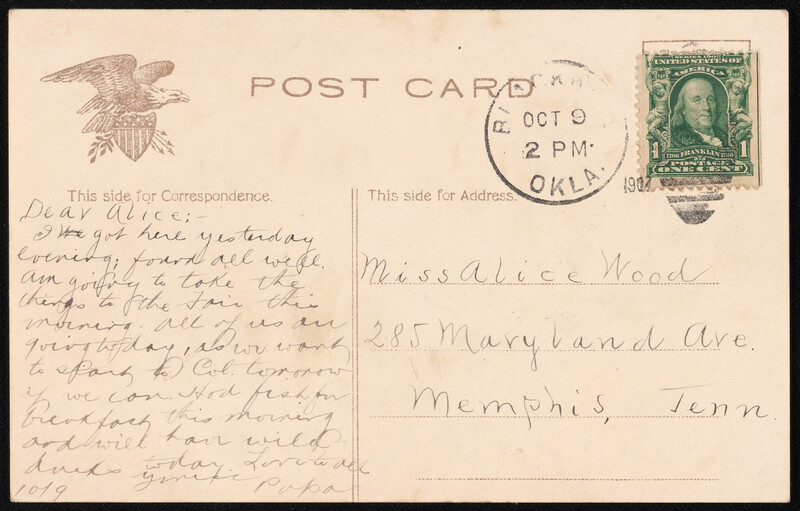 POST CARD
BLACK
OCT 9
2 PM.
OKLA.
1907
SERIES 1902
UNITED STATES OF
AMERICA
1 1706 FRANKLIN 1790 1
POSTAGE
ONE CENT
This side for Correspondence.
Dear Alice:-
I got here yesterday
evening; found all well.
am going to take the
things to the Fair this
morning. All of us are
going today, as we want
to start to Col. tomorrow
if we can. Had fish for
breakfast this morning
and will have wild
ducks today. Love to all
Papa
10/9
This side for Address.
Miss Alice Wood
285 Maryland Ave.
Memphis, Tenn.